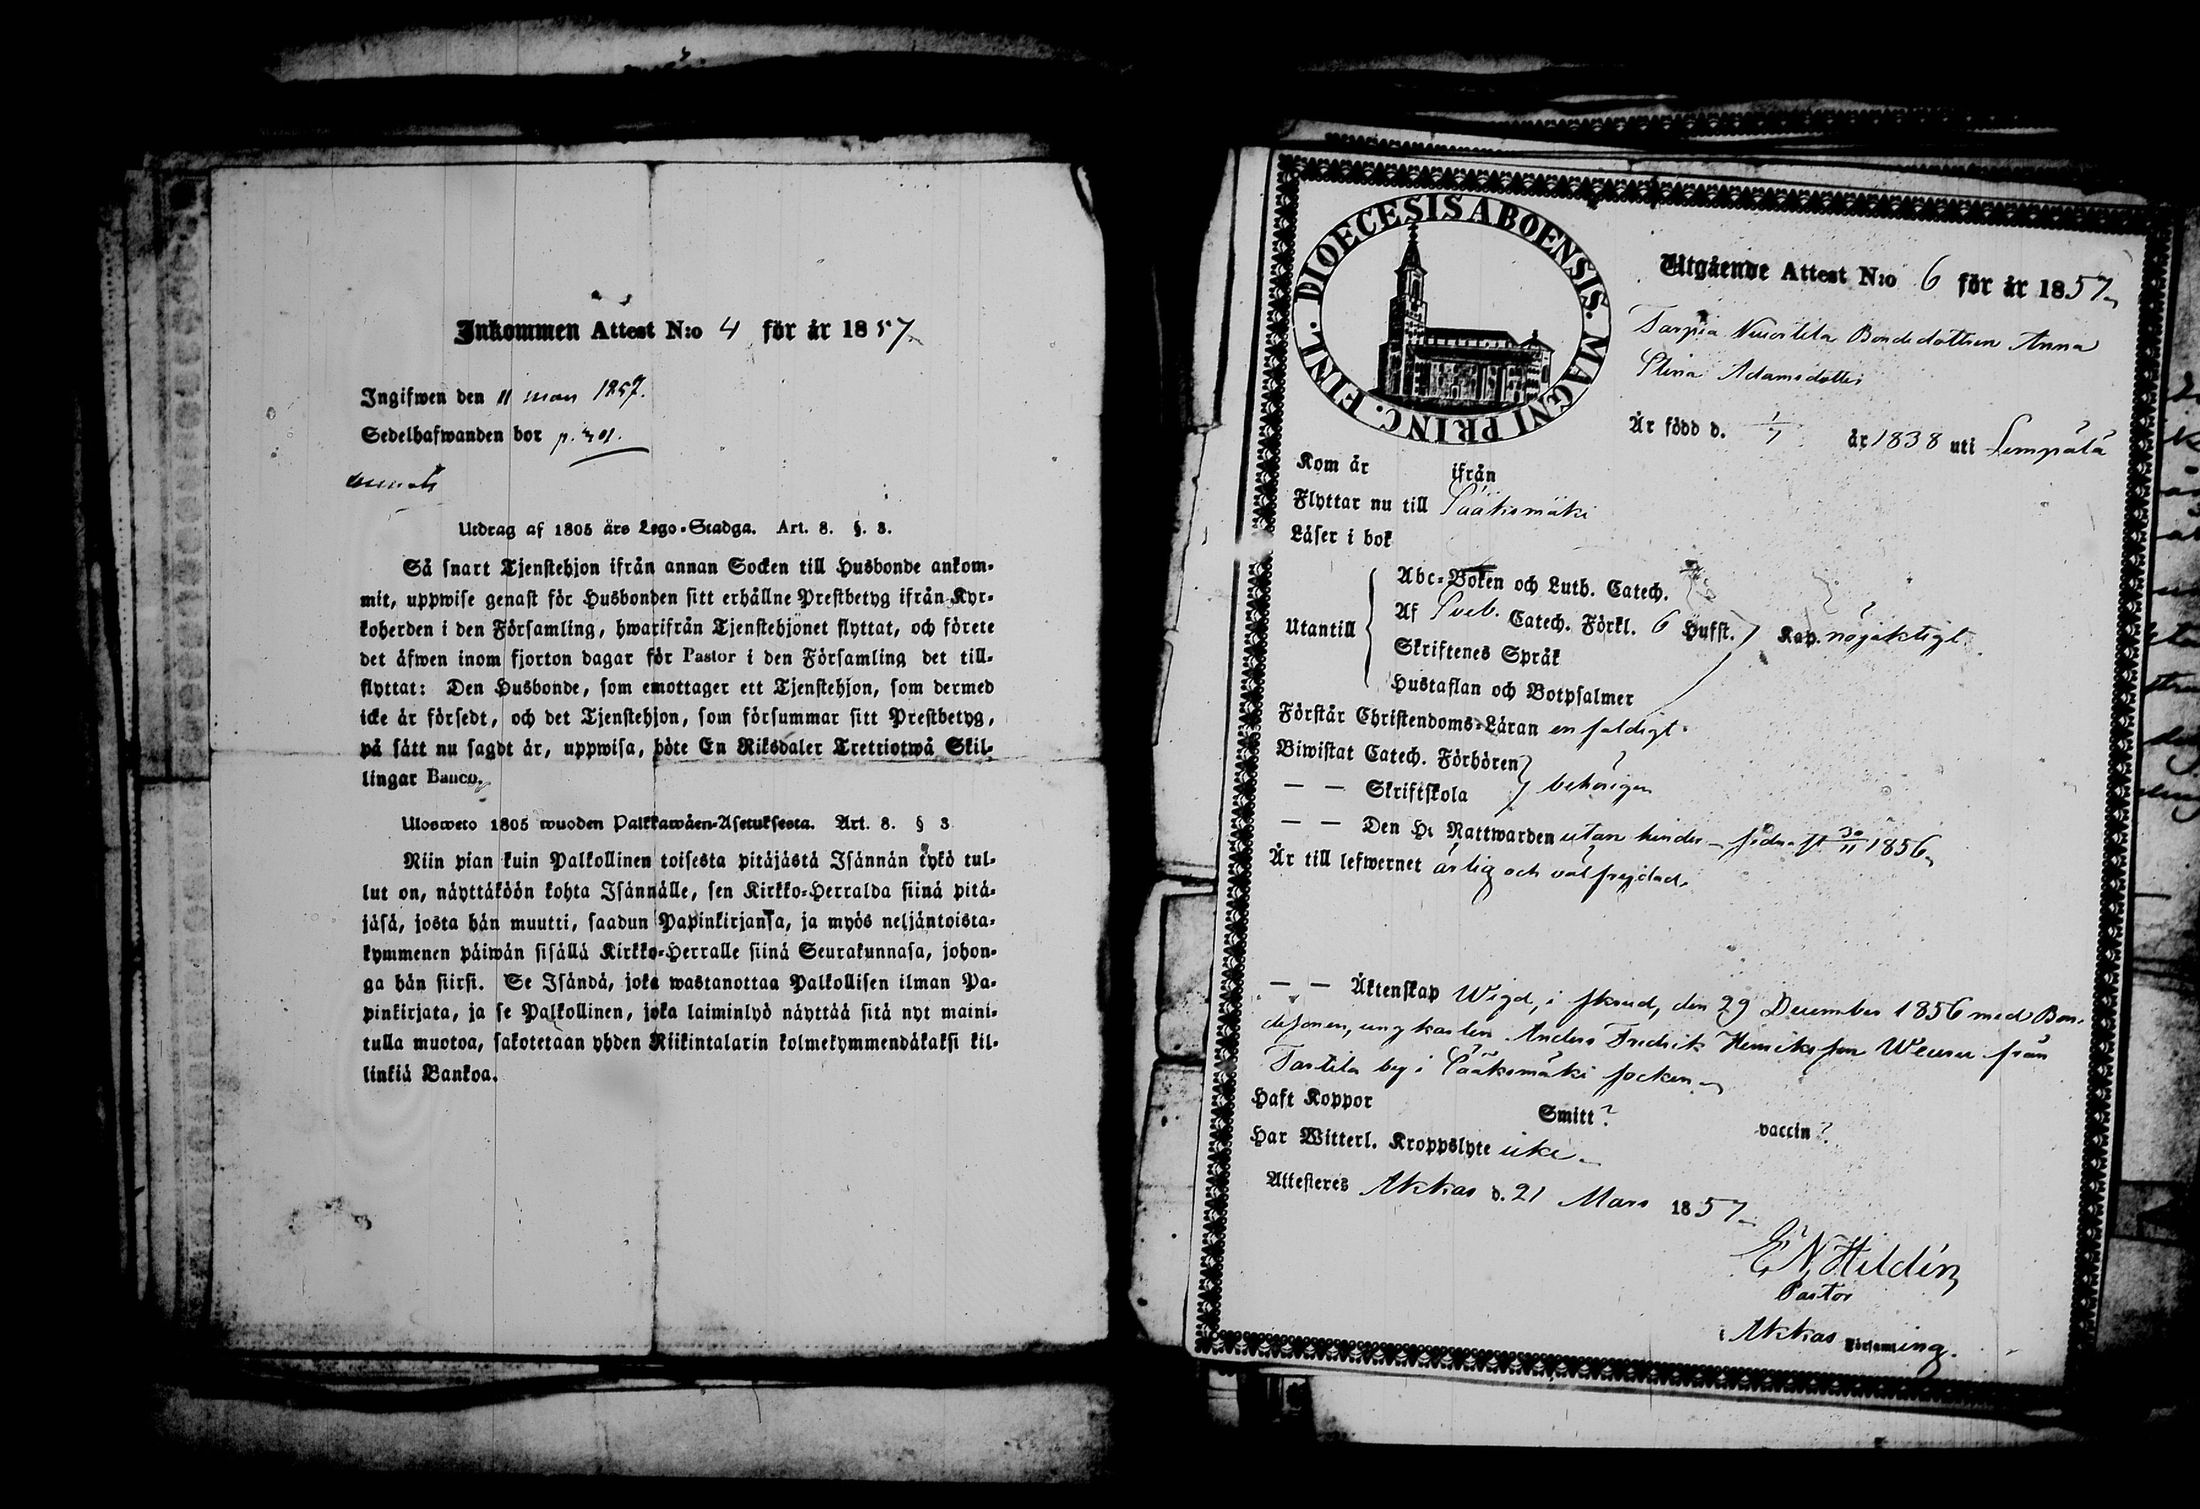 Inkommen Attest N:o 4 för år 1857.
Ingifwen den 11 mars 1857.
Sedelhafwanden bor p.
Utdrag af 1805 års Lego-Stadga. Art. 8. §. 3.
Så snart Tjenstehjon ifrån annan Socken till Husbonde ankom-
mit, uppwise genast för Husbonden sitt erhållne Prestbetyg ifrån Kyr-
koherden i den Församling, hwarifrån Tjenstehjonet flyttat, och förete
det äfwen inom fjorton dagar för Pastor i den Församling det till-
flyttat: Den Husbonde, som emottager ett Tjenstehjon, som dermed
icke är försedt, och det Tjenstehjon, som försummar sitt Prestbetyg,
på sätt nu sagdt är, uppwisa, böte En Riksdaler Trettiotwå Skil-
lingar Banco.
Ulosweto 1805 wuoden Palkkawäen-Asetuksesta. Art. 8. § 3
Niin pian kuin Palkollinen toisesta pitäjästä Isännän tykö tul-
lut on, näyttäköön kohta Isännälle, sen Kirkko-Herralda siinä pitä-
jäsä, josta hän muutti, saadun Papinkirjansa, ja myös neljäntoista-
kymmenen päiwän sisällä Kirkko-Herralle siinä Seurakunnasa, johon-
ga hän siirsi. Se Isändä, joka wastanottaa Palkollisen ilman Pa-
pinkirjata, ja se Palkollinen, joka laiminlyö näyttää sitä nyt maini-
tulla muotoa, sakotetaan yhden Riikintalarin kolmekymmendäkaksi kil-
linkiä Bankoa.
DIOECESIS ABOENSIS. MAGNI PRINC. FINL.
Utgående Attest N:o 6 för år 1857
Tarpia Nuortila Bondedottren Anna
Stina Adamsdotter
Är född d. 1/7 år 1838 uti Lempälä
Kom år ifrån
Flyttar nu till Sääksmäki
Läser i bok
Abc-Boken och Luth. Catech.
Utantill Af Sveb. Catech. Förkl. 6 Hufst. Kap. nöjaktigt.
Skriftenes Språk
Hustaflan och Botpsalmer
Förstår Christendoms-Läran enfaldigt.
Biwistat Catech. Förhören
— — Skriftskola behörigen
— — Den H. Nattwarden utan hinder sednast 30/11 1856
Är till lefwernet ärlig och välfrejdad.
— — Äktenskap Wigd, i Akaa, den 29 December 1856 med Bon-
desonen, ungkarlen Anders Fredrik Henriksson från
by i Sääksmäki socken
Haft Koppor Smitt? vaccin?
Har Witterl. Kroppslyte icke
Attesteres Akkas d. 21 Mars 1857
E N Hildén
Pastor
i Akkas Församling.